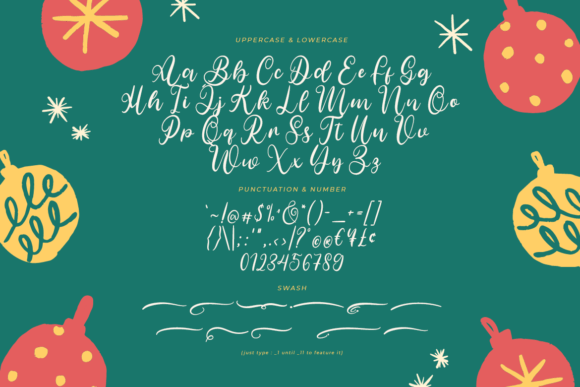 UPPERCASE & LOWERCASE
Aa Bb Cc Dd Ee Ff Gg
Hh Ii Jj Kk Ll Mm Nn Oo
Pp Qq Rr Ss Tt Uu Vv
Ww Xx Yy Zz
PUNCTUATION & NUMBER
`~!@#$%^&*()-_+=[]
{}\|;:'",.<>/?°©®€¥£¢
0123456789
SWASH
(just type : _1 until _11 to feature it)